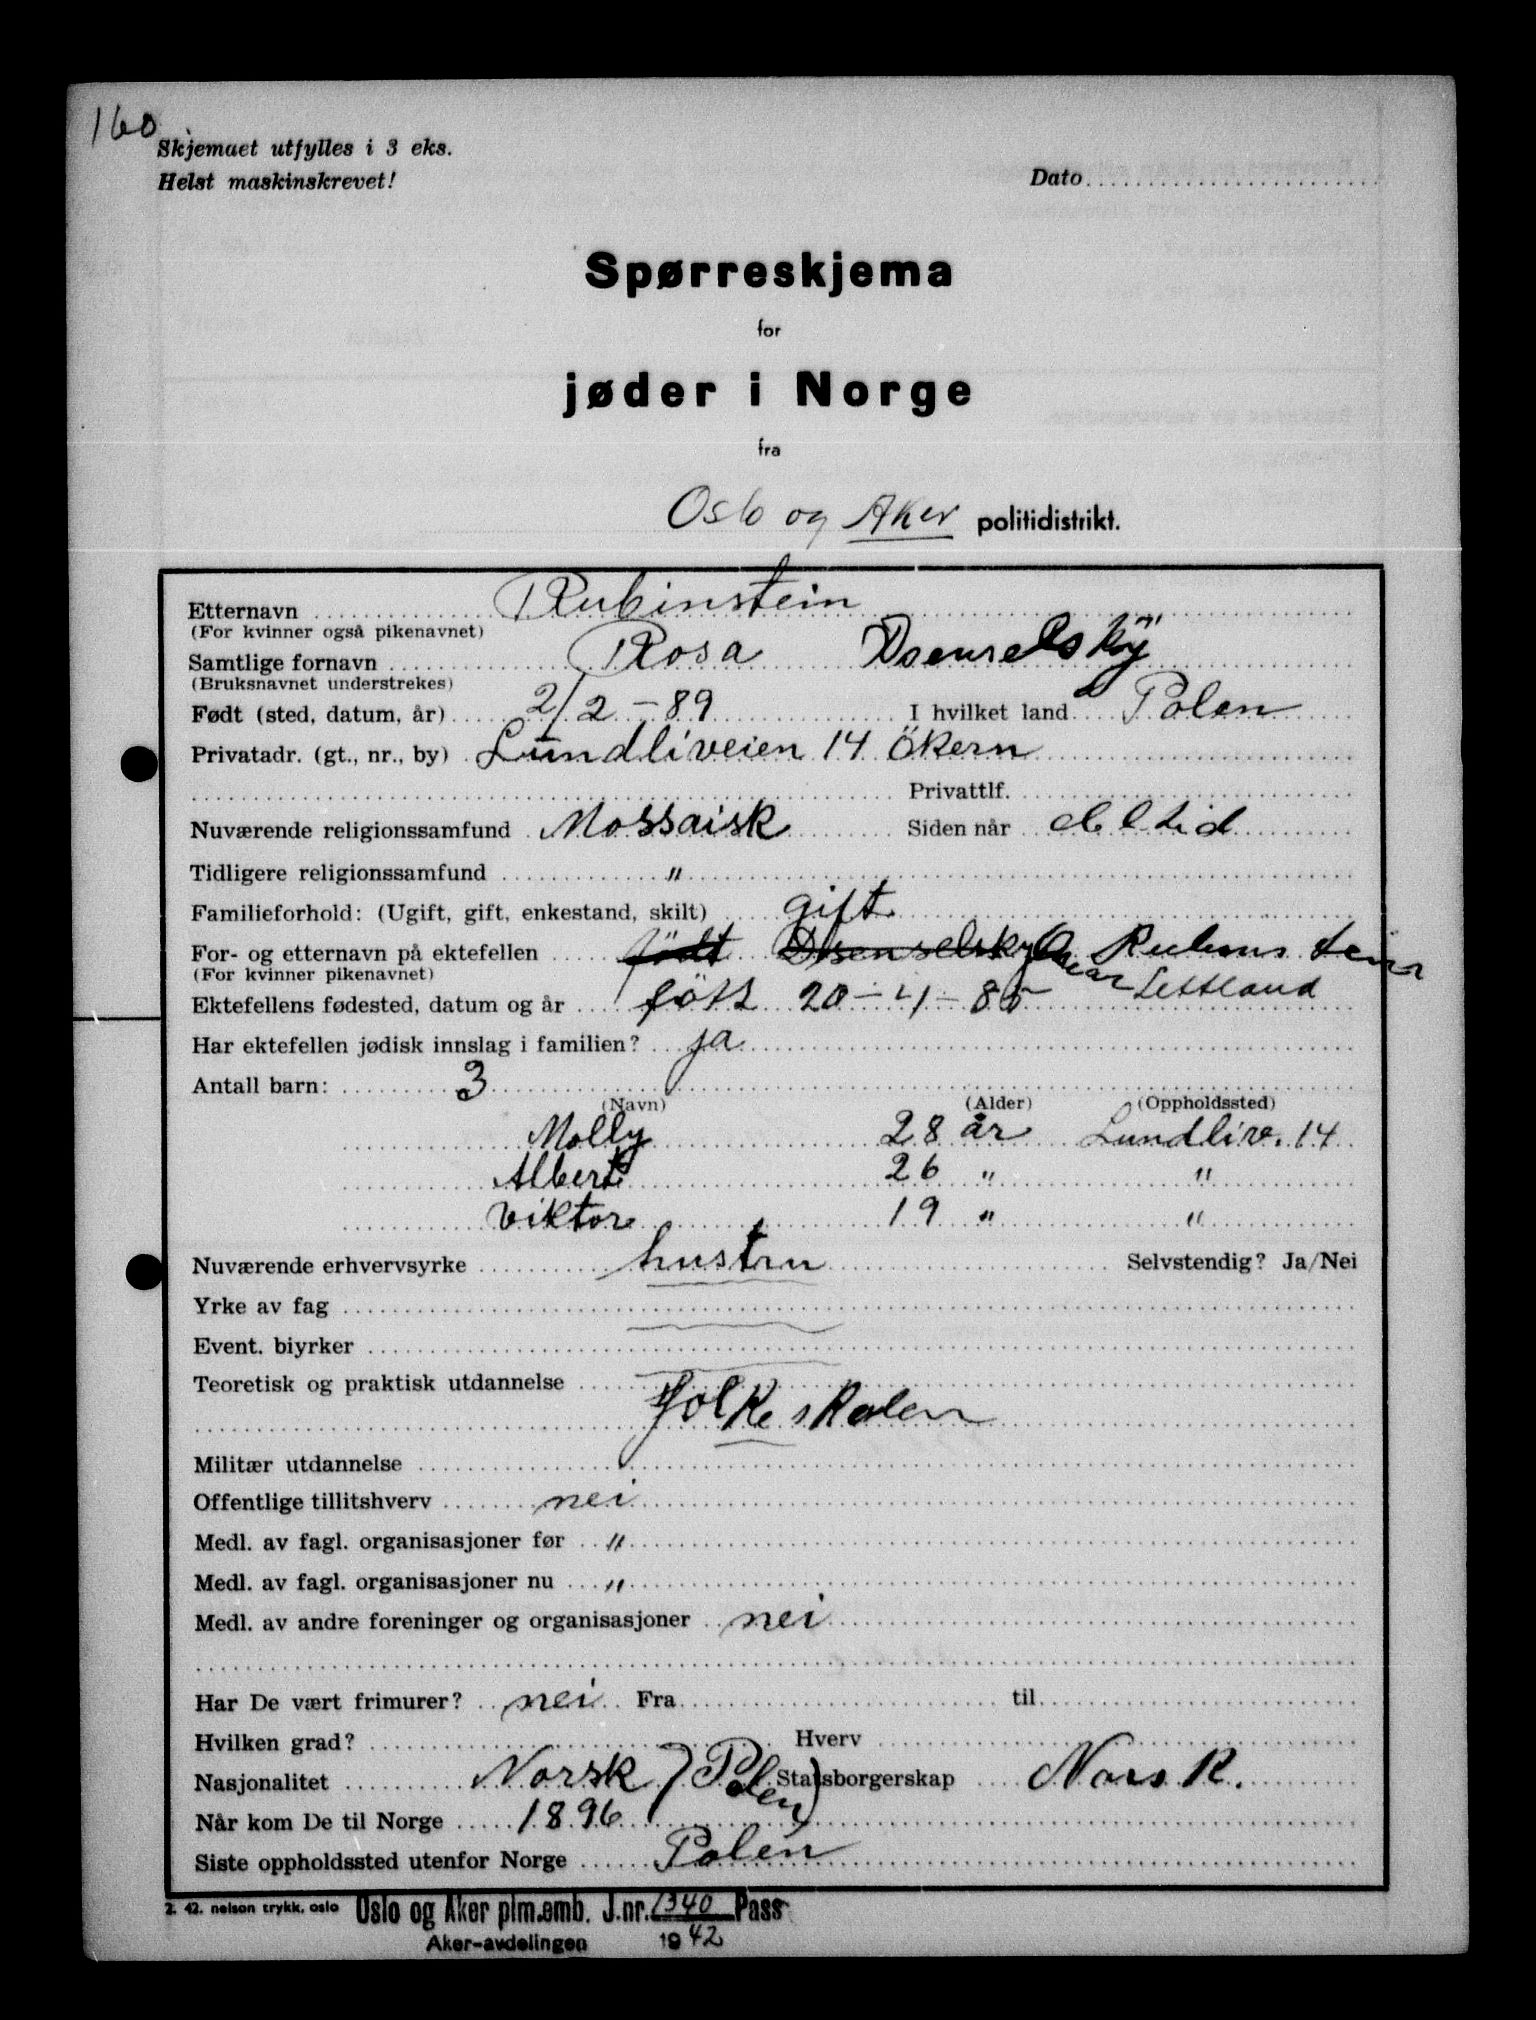 160
Skjemaet utfylles i 3 eks.
Helst maskinskrevet!
Dato
Spørreskjema
for
jøder i Norge
fra
Oslo og Aker politidistrikt.
Etternavn Rubinstein
(For kvinner også pikenavnet)
Samtlige fornavn Rosa Dsenselsky
(Bruksnavnet understrekes)
Født (sted, datum, år) 2/2 - 89 I hvilket land Polen
Privatadr. (gt., nr., by) Lundliveien 14 Ökern
Privattlf.
Nuværende religionssamfund Mossaisk Siden når alltid
Tidligere religionssamfund "
Familieforhold: (Ugift, gift, enkestand, skilt) gift
For- og etternavn på ektefellen født Dsenselsky Rubinstein
(For kvinner pikenavnet)
Ektefellens fødested, datum og år født 20-4-85 Lettland
Har ektefellen jødisk innslag i familien? ja
Antall barn: 3
(Navn) (Alder) (Oppholdssted)
Molly 28 år Lundliv. 14
Albert 26 " "
Viktor 19 " "
Nuværende erhvervsyrke hustru Selvstendig? Ja/Nei
Yrke av fag
Event. biyrker
Teoretisk og praktisk utdannelse
Folkeskolen
Militær utdannelse
Offentlige tillitshverv nei
Medl. av fagl. organisasjoner før "
Medl. av fagl. organisasjoner nu "
Medl. av andre foreninger og organisasjoner nei
Har De vært frimurer? nei Fra til
Hvilken grad? Hverv
Nasjonalitet Norsk (Polen) Statsborgerskap Norsk.
Når kom De til Norge 1896
Siste oppholdssted utenfor Norge Polen
2. 42. nelson trykk. oslo Oslo og Aker plm.emb. J.nr. 1340 Pass
Aker-avdelingen 1942